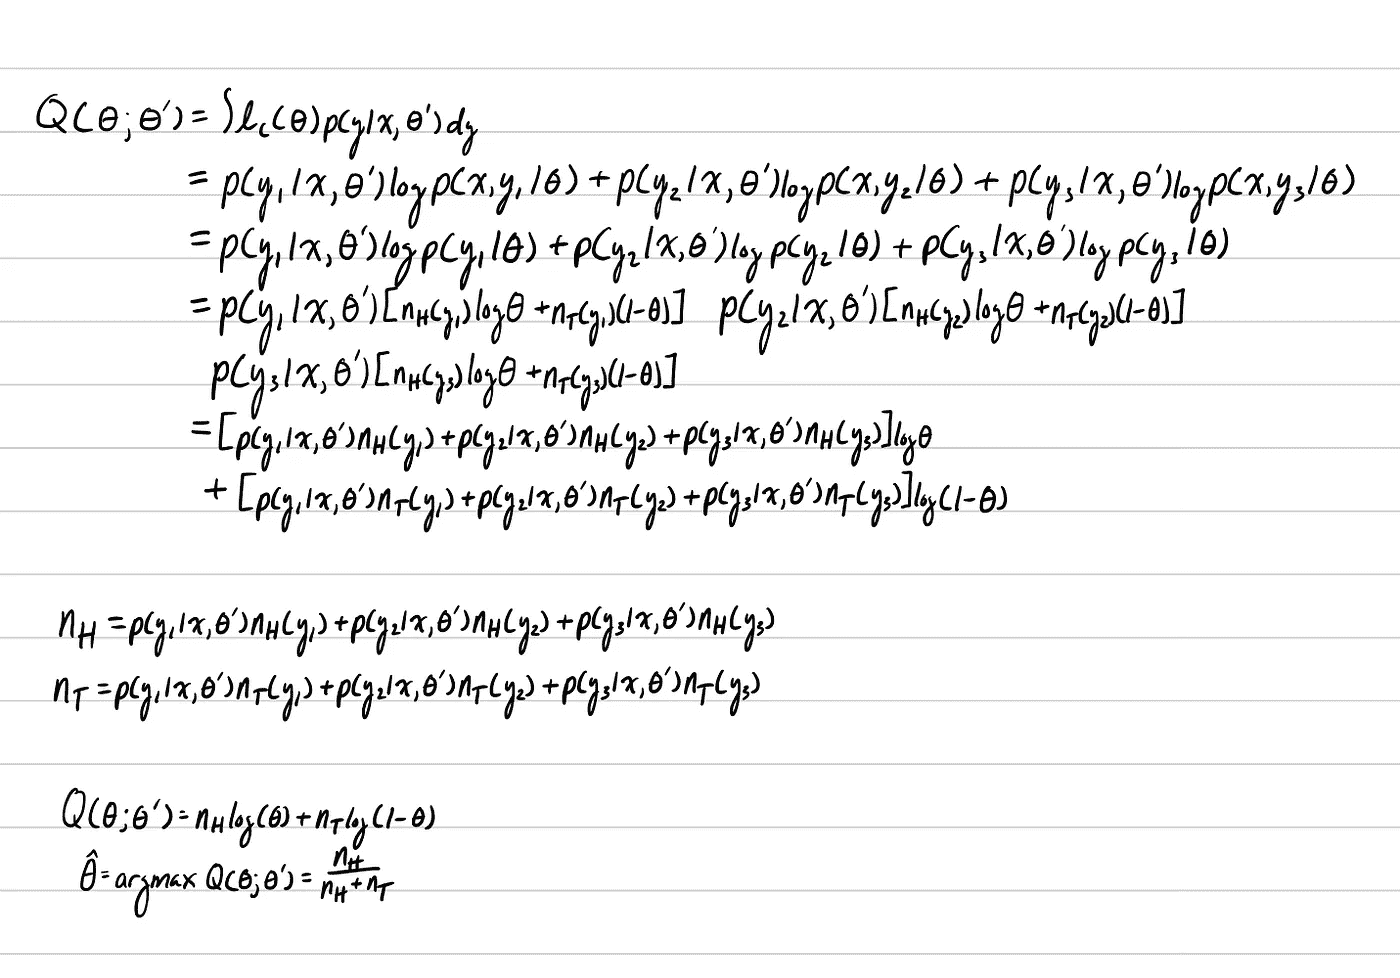 Q(θ;θ′) = ∫l_c(θ)p(y|x,θ′)dy
= p(y₁|x,θ′)log p(x,y₁|θ) + p(y₂|x,θ′)log p(x,y₂|θ) + p(y₃|x,θ′)log p(x,y₃|θ)
= p(y₁|x,θ′)log p(y₁|θ) + p(y₂|x,θ′)log p(y₂|θ) + p(y₃|x,θ′)log p(y₃|θ)
= p(y₁|x,θ′)[n_H(y₁)logθ + n_T(y₁)(1-θ)] p(y₂|x,θ′)[n_H(y₂)logθ + n_T(y₂)(1-θ)]
p(y₃|x,θ′)[n_H(y₃)logθ + n_T(y₃)(1-θ)]
= [p(y₁|x,θ′)n_H(y₁) + p(y₂|x,θ′)n_H(y₂) + p(y₃|x,θ′)n_H(y₃)]logθ
+ [p(y₁|x,θ′)n_T(y₁) + p(y₂|x,θ′)n_T(y₂) + p(y₃|x,θ′)n_T(y₃)]log(1-θ)
n_H = p(y₁|x,θ′)n_H(y₁) + p(y₂|x,θ′)n_H(y₂) + p(y₃|x,θ′)n_H(y₃)
n_T = p(y₁|x,θ′)n_T(y₁) + p(y₂|x,θ′)n_T(y₂) + p(y₃|x,θ′)n_T(y₃)
Q(θ;θ′) = n_H log(θ) + n_T log(1-θ)
θ̂ = argmax Q(θ;θ′) = n_H / (n_H + n_T)